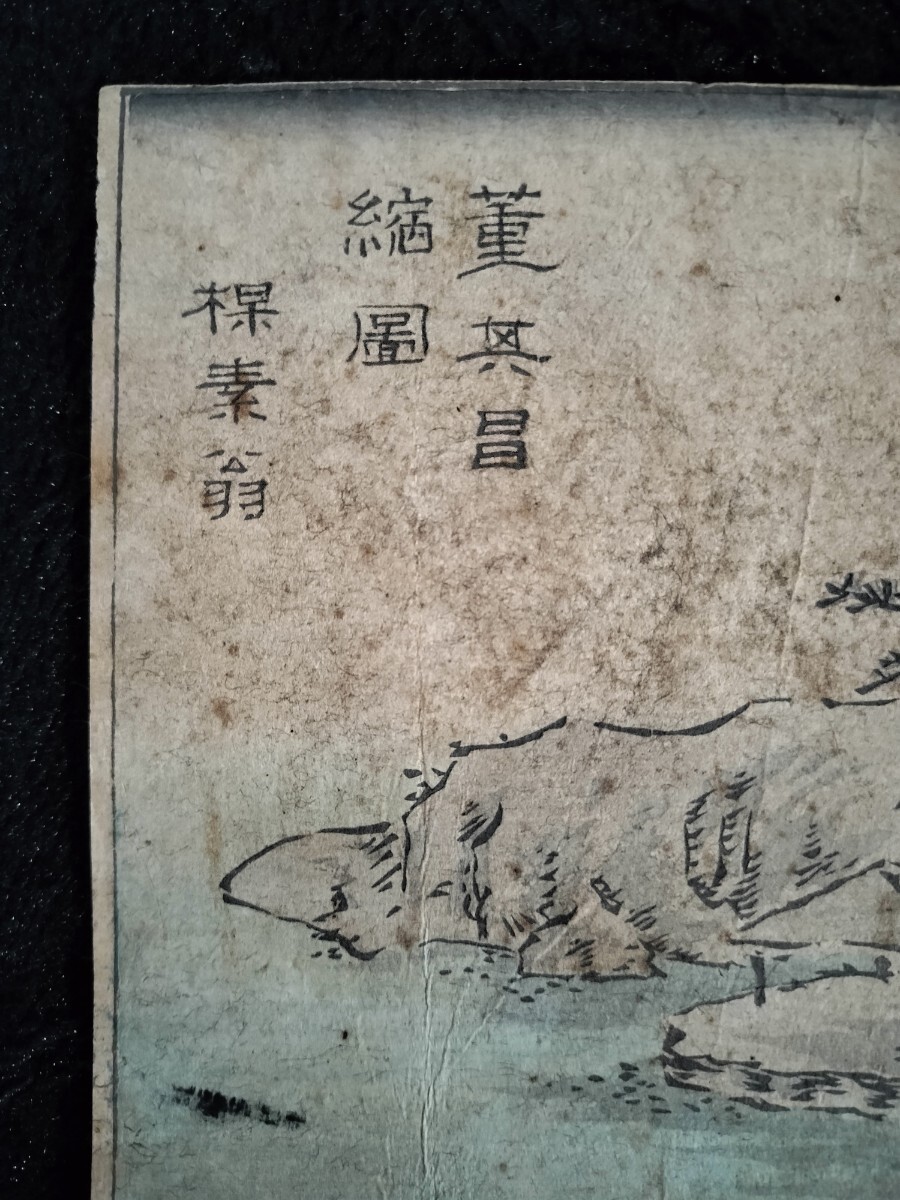 董其昌
縮圖
樸素翁